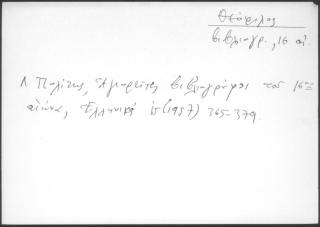 Θεόφιλος
βιβλιογρ., 16 αἰ
Λ. Πολίτης, Ἁγιορεῖτες βιβλιογράφοι τοῦ 16ου
αἰώνα, Ἑλληνικά ιε (1957) 365-379.